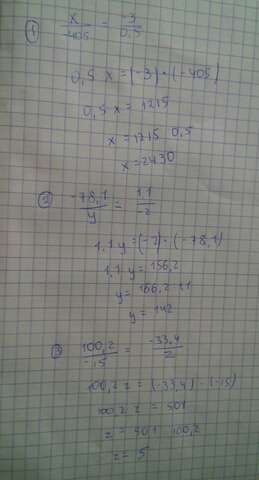 ① x/-405 = -3/0,5
0,5 x = (-3) · (-405)
0,5 x = 1215
x = 1215 : 0,5
x = 2430
② -78,1/y = 1,1/-2
1,1 y = (-2) · (-78,1)
1,1 y = 156,2
y = 156,2 : 1,1
y = 142
③ 100,2/-1,5 = -33,4/z
100,2 z = (-33,4) · (-15)
100,2 z = 501
z = 501 : 100,2
z = 5